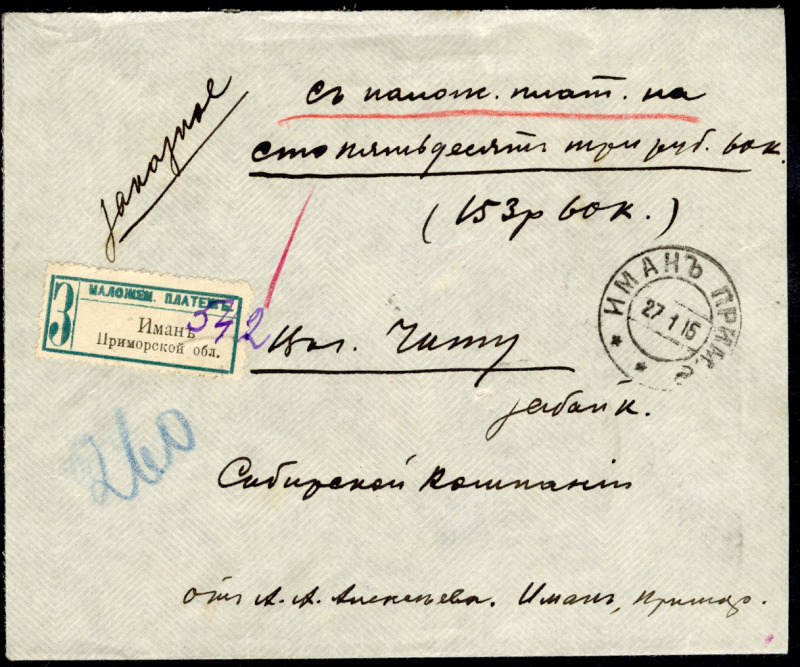 заказное
съ налож. плат. на
сто пятьдесятъ три руб. 60 к.
(153р 60к.)
З
НАЛОЖЕН. ПЛАТЕЖЪ.
Иманъ
Приморской обл.
542
ИМАНЪ ПРИМ.
27 1 15
Читу
забайк.
260
Сибирской Компанiи
отъ А. А. Алексѣева. Иманъ, Примор.